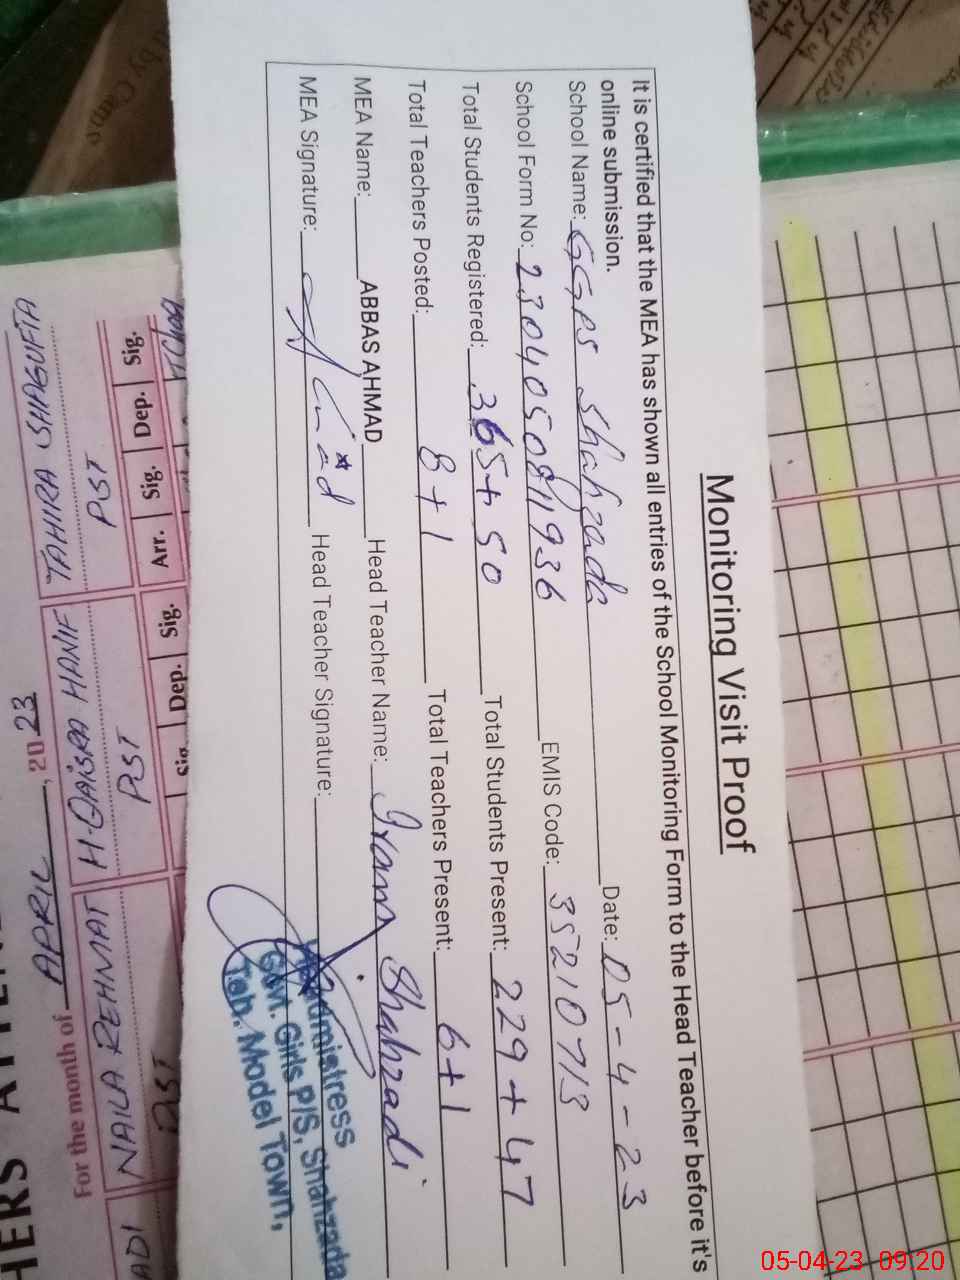 Monitoring Visit Proof
It is certified that the MEA has shown all entries of the School Monitoring Form to the Head Teacher before it's
online submission.
School Name: GGPS Shahzada Date: 05-4-23
School Form No: 230405081936 EMIS Code: 35210713
Total Students Registered: 365+50 Total Students Present: 229+47
Total Teachers Posted: 8+1 Total Teachers Present: 6+1
MEA Name: ABBAS AHMAD Head Teacher Name: Iram Shahzadi
MEA Signature: Head Teacher Signature:
Headmistress
Govt. Girls P/S, Shahzada
Teh. Model Town,
For the month of APRIL, 2023
TAHIRA SHABBAIR
PST
HANIF
PST
NAILA REHMAT
PST
Sig. Dep. Sig. Arr. Sig. Dep. Sig.
05-04-23 09:20